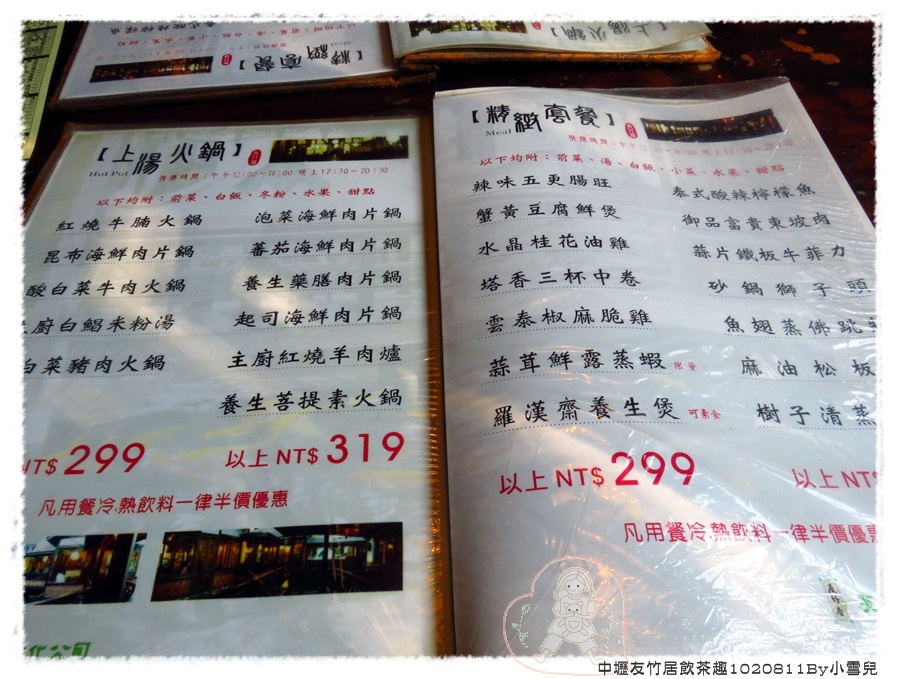 【上湯火鍋】
Hot Pot
供應時間：中午12:00~16:00 晚上17:30~20:30
以下均附：前菜、白飯、冬粉、水果、甜點
紅燒牛腩火鍋
泡菜海鮮肉片鍋
昆布海鮮肉片鍋
蕃茄海鮮肉片鍋
酸白菜牛肉火鍋
養生藥膳肉片鍋
廚白鯧米粉湯
起司海鮮肉片鍋
白菜豬肉火鍋
主廚紅燒羊肉爐
養生菩提素火鍋
NT$ 299
以上 NT$ 319
凡用餐冷.熱飲料一律半價優惠
【精緻套餐】
Meal
供應時間：中午12:00~16:00 晚上17:30~20:30
以下均附：前菜、湯、白飯、小菜、水果、甜點
辣味五更腸旺
泰式酸辣檸檬魚
蟹黃豆腐鮮煲
御品富貴東坡肉
水晶桂花油雞
蒜片鐵板牛菲力
塔香三杯中卷
砂鍋獅子頭
雲泰椒麻脆雞
魚翅蒸佛跳
蒜茸鮮露蒸蝦 限量
麻油松板
羅漢齋養生煲 可素食
樹子清蒸
以上 NT$ 299
以上 NT$
凡用餐冷.熱飲料一律半價優
友竹居
中壢友竹居飲茶趣1020811By小雪兒